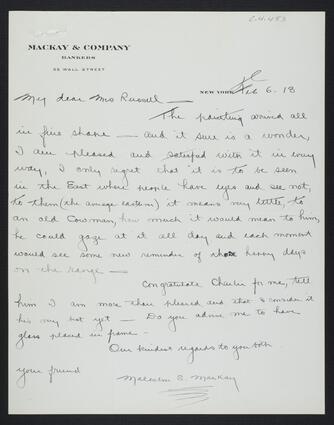 C.4.453
MACKAY & COMPANY
BANKERS
55 WALL STREET
NEW YORK Feb 6 - 18
My dear Mrs Russell —
The painting arrived all
in fine shape — and it sure is a wonder,
I am pleased and satisfied with it in every
way, I only regret that it is to be seen
in the East where people have eyes and see not,
to them (the average eastern) it means very little, to
an old Cowman, how much it would mean to him,
he could gaze at it all day and each moment
would see some new reminder of those happy days
on the range —
Congratulate Charlie for me, tell
him I am more than pleased and that I consider it
his very best yet — Do you advise me to have
glass placed in frame —
Our kindest regards to you both
your friend
Malcolm S. Mackay